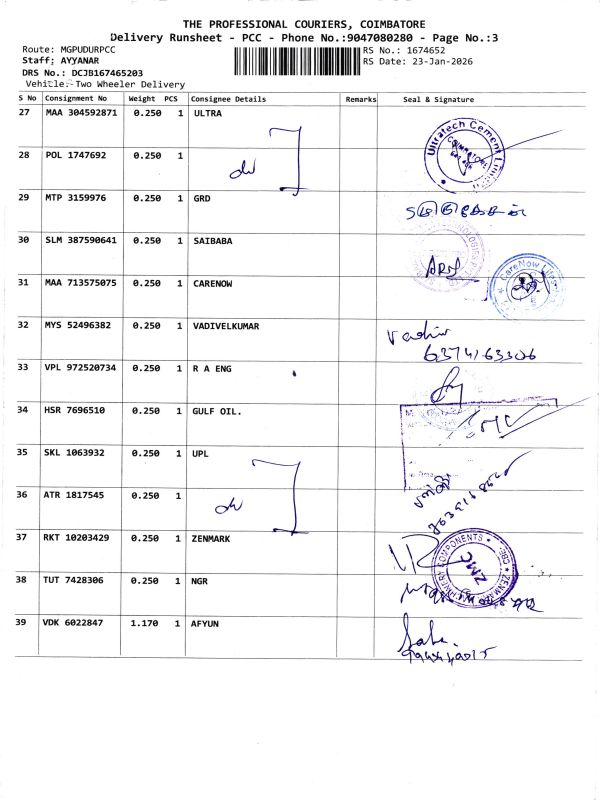 THE PROFESSIONAL COURIERS, COIMBATORE
Delivery Runsheet - PCC - Phone No.:9047080280 - Page No.:3
Route: MGPUDURPCC
RS No.: 1674652
Staff: AYYANAR
RS Date: 23-Jan-2026
DRS No.: DCJB167465203
Vehicle: Two Wheeler Delivery
S No Consignment No Weight PCS Consignee Details Remarks Seal & Signature
27 MAA 304592871 0.250 1 ULTRA
Ultratech Cement Limited
COIMBATORE
28 POL 1747692 0.250 1
29 MTP 3159976 0.250 1 GRD
30 SLM 387590641 0.250 1 SAIBABA
31 MAA 713575075 0.250 1 CARENOW
CareNow
32 MYS 52496382 0.250 1 VADIVELKUMAR
6374163306
33 VPL 972520734 0.250 1 R A ENG
34 HSR 7696510 0.250 1 GULF OIL.
35 SKL 1063932 0.250 1 UPL
36 ATR 1817545 0.250 1
37 RKT 10203429 0.250 1 ZENMARK
ZMC
38 TUT 7428306 0.250 1 NGR
39 VDK 6022847 1.170 1 AFYUN